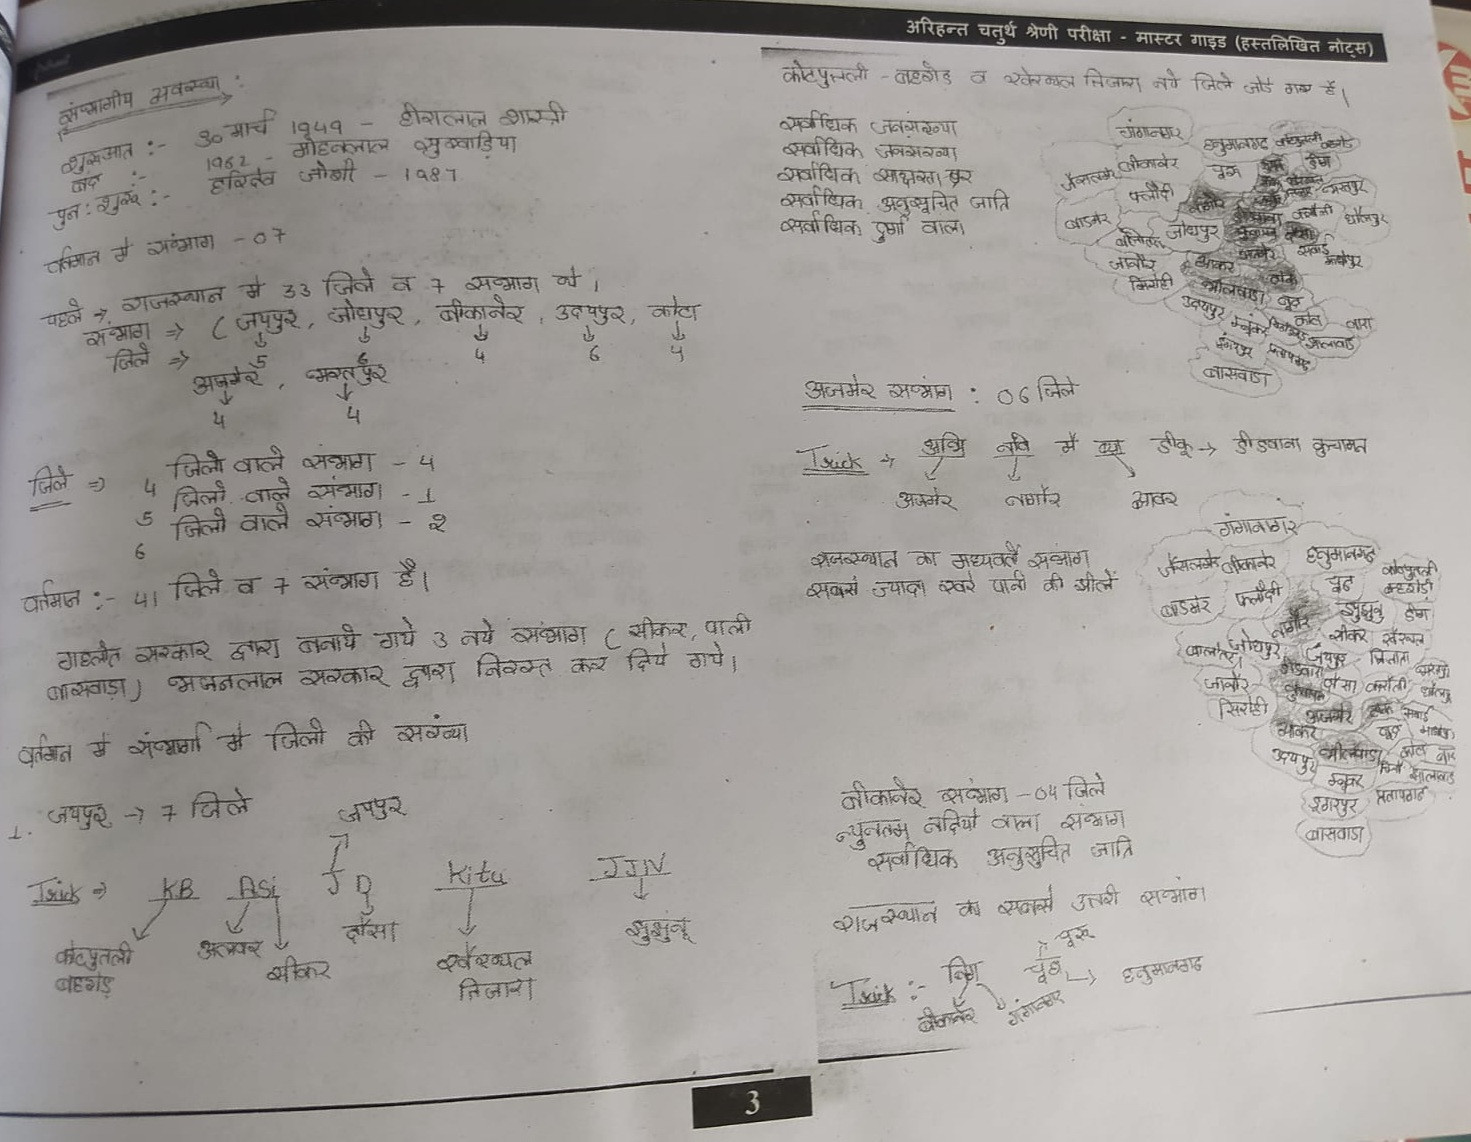 अरिहन्त चतुर्थ श्रेणी परीक्षा - मास्टर गाइड (हस्तलिखित नोट्स)
संभागीय व्यवस्था :
शुरूआत :- 30 मार्च 1949 - हीरालाल शास्त्री
बंद :- 1962 - मोहनलाल सुखाड़िया
पुन: शुरू :- हरिदेव जोशी - 1987
वर्तमान में संभाग - 07
पहले → राजस्थान में 33 जिले व 7 संभाग थे।
संभाग ⇒ ( जयपुर, जोधपुर, बीकानेर, उदयपुर, कोटा
जिले ⇒ 5 6 4 6 4
अजमेर, भरतपुर
4 4
जिले ⇒ 4 जिलो वाले संभाग - 4
5 जिलो वाले संभाग - 1
6 जिलो वाले संभाग - 2
वर्तमान :- 41 जिले व 7 संभाग है।
गहलोत सरकार द्वारा बनाये गये 3 नये संभाग ( सीकर, पाली
बासवाड़ा) भजनलाल सरकार द्वारा निरस्त कर दिये गये।
वर्तमान में संभागो में जिलो की संख्या
1. जयपुर → 7 जिले
जयपुर
Trick ⇒ KB ASi J D Kitu JJN
कोटपुतली बहरोड़
अलवर
सीकर
दौसा
खैरथल तिजारा
झुझुंनू
कोटपुतली - बहरोड़ व खैरथल तिजारा नये जिले जोड़े गए है।
सर्वाधिक जनसंख्या
सर्वाधिक जनसंख्या
सर्वाधिक साक्षरता दर
सर्वाधिक अनुसूचित जाति
सर्वाधिक दुर्गो वाला
गंगानगर
हनुमानगढ़
बीकानेर
चूरू
जैसलमेर
फलौदी
बाडमेर
जोधपुर
जालौर
सिरोही
उदयपुर
भीलवाडा
बासवाडा
अजमेर संभाग : 06 जिले
Trick → अभि नवि में ब्या डीकू → डीडवाना कुचामन
अजमेर नागौर ब्यावर
राजस्थान का मध्यवर्ती संभाग
सबसे ज्यादा खारे पानी की झीलें
गंगानगर
जैसलमेर बीकानेर हनुमानगढ
चूरू
कोटपुतली बहरोड़
बाडमेर फलौदी
झुझुनू
नागौर
सीकर
बालोतरा
जोधपुर
जयपुर
जालौर
दौसा करौली
सिरोही
अजमेर
उदयपुर
भीलवाडा
डूंगरपुर
प्रतापगढ
बासवाडा
बीकानेर संभाग - 04 जिले
न्युनतम नदियो वाला संभाग
सर्वाधिक अनुसुचित जाति
राजस्थान का सबसे उत्तरी संभाग
Trick :- बिग चूह → हनुमानगढ
चूरू
बीकानेर गंगानगर
3